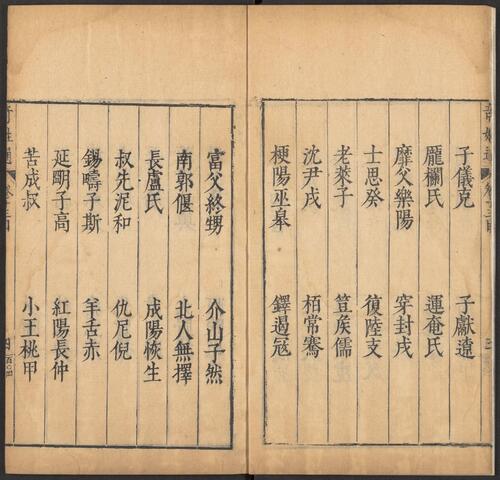 子儀克　子獻遼
龎欄氏　運奄氏
靡父樂陽　穿封戌
士思癸　復陸支
老萊子
沈尹戌　栢常騫
梗陽巫皋　鐸遏冦
富父終甥　介山子然
南郭偃　北人無擇
長盧氏　成陽恢生
叔先泥和　仇尼倪
錫疇子斯　羊舌赤
延明子高　紅陽長仲
苦成叔　小王桃甲